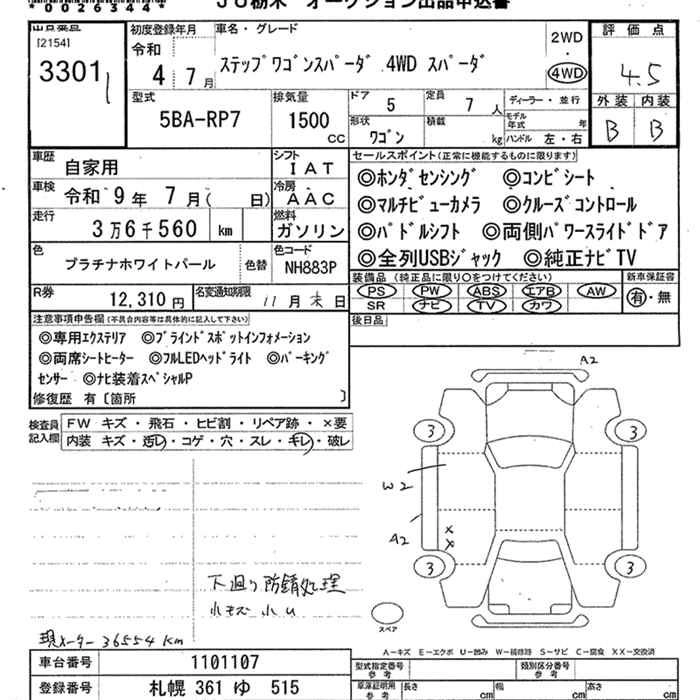 *0026344*
JU栃木 オークション出品申込書
[2154]
3301
初度登録年月
令和
4年7月
車名・グレード
ステップワゴンスパーダ 4WD スパーダ
2WD
・
4WD
評価点
4.5
外装 内装
B B
型式
5BA-RP7
排気量
1500
cc
ドア
5
定員
7人
ディーラー・並行
形状
ワゴン
積載
kg
モデル年式 年
ハンドル 左・右
車歴
自家用
シフト
IAT
車検
令和 9年 7月( 日)
冷房
AAC
走行
3万6千560 km
燃料
ガソリン
色
プラチナホワイトパール
色替
色コード
NH883P
R券
12,310円
名変通知期限
11月末日
セールスポイント(正常に機能するものに限ります)
◎ホンダセンシング ◎コンビシート
◎マルチビューカメラ ◎クルーズコントロール
◎パドルシフト ◎両側パワースライドドア
◎全列USBジャック ◎純正ナビTV
装備品(純正品に限り○をつけてください)
PS PW ABS エアB AW
SR ナビ TV カワ
新車保証書
有・無
後日品
注意事項申告欄(不具合内容等は具体的に記入して下さい)
◎専用エクステリア ◎ブラインドスポットインフォメーション
◎両席シートヒーター ◎フルLEDヘッドライト ◎パーキング
センサー ◎ナビ装着スペシャルP
修復歴 有〔箇所 〕
検査員
記入欄
FW キズ・飛石・ヒビ割・リペア跡・×要
内装 キズ・汚レ・コゲ・穴・スレ・キレ・破レ
A2
3 3
W2
A2
×
×
3 3
スペア
下廻り防錆処理
小キズ小U
現メーター36554km
A-キズ E-エクボ U-凹み W-補修跡 S-サビ C-腐食 XX-交換済
車台番号
1101107
登録番号
札幌 361 ゆ 515
型式指定番号
参考
類別区分番号
参考
車庫証明用
参考
長さ cm 幅 cm 高さ cm